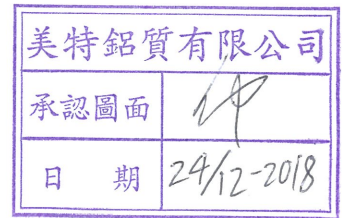 美特鋁質有限公司
承認圖面
日期 24/12-2018